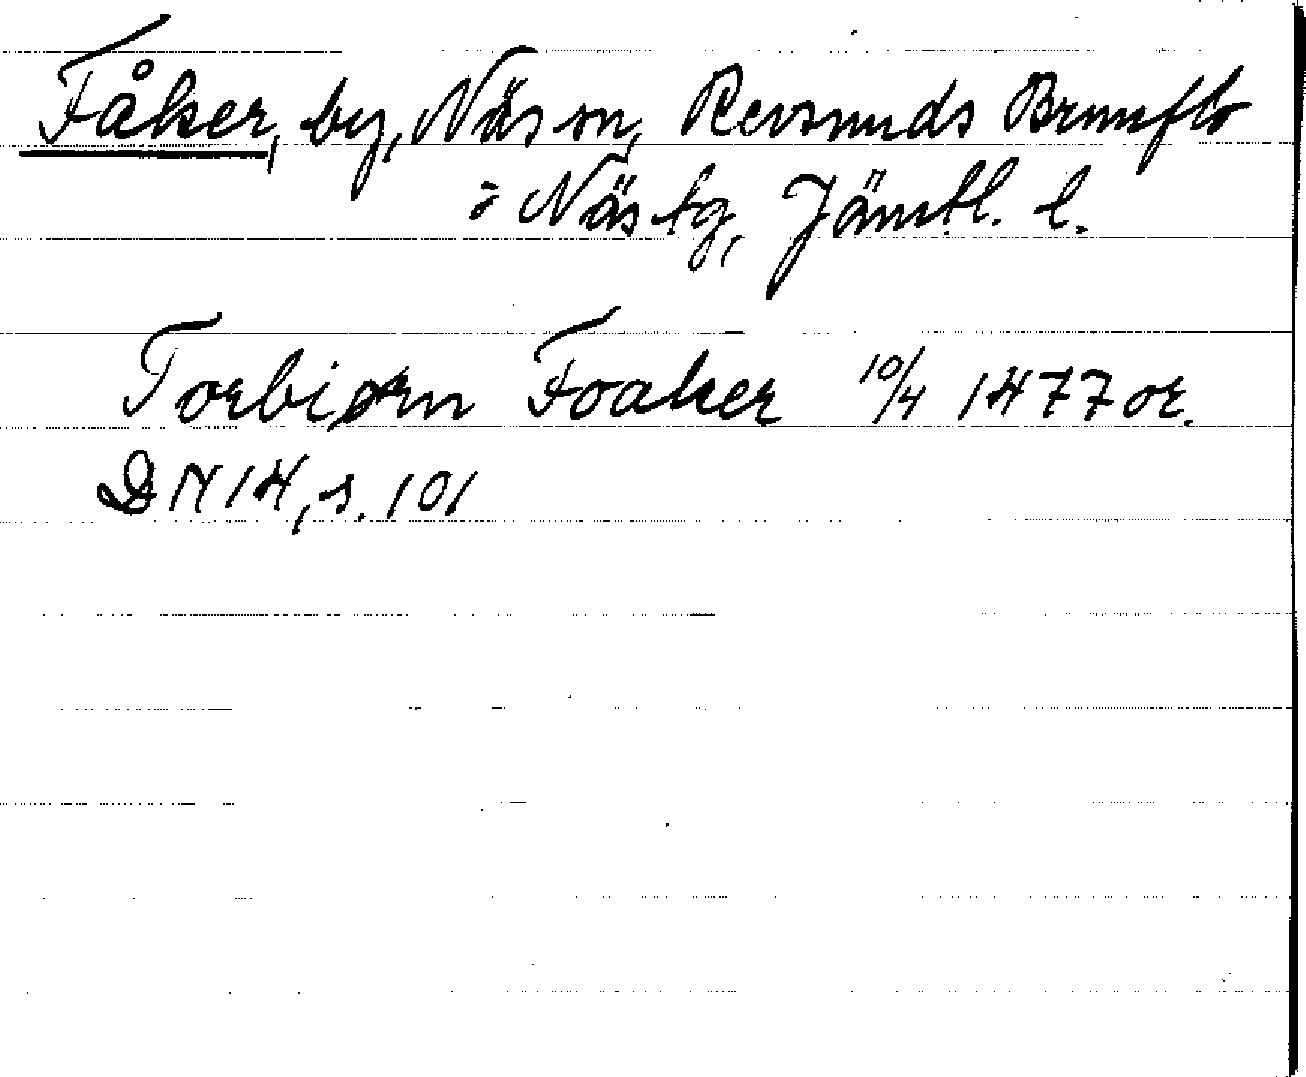 Fåker, by, Näs sn, Revsunds Brunflo
: Näs tg, Jämtl. l.
Torbiørn Foaker 10/4 1477 or.
DN 14, s. 101